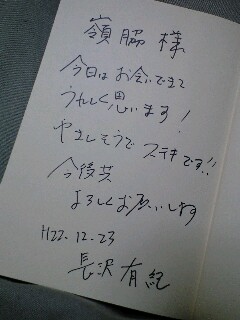 嶺脇 様
今日はお会いできて
うれしく思います!
やさしそうで ステキです!!
今後共
よろしくお願いします
H22.12.23
長沢 有紀